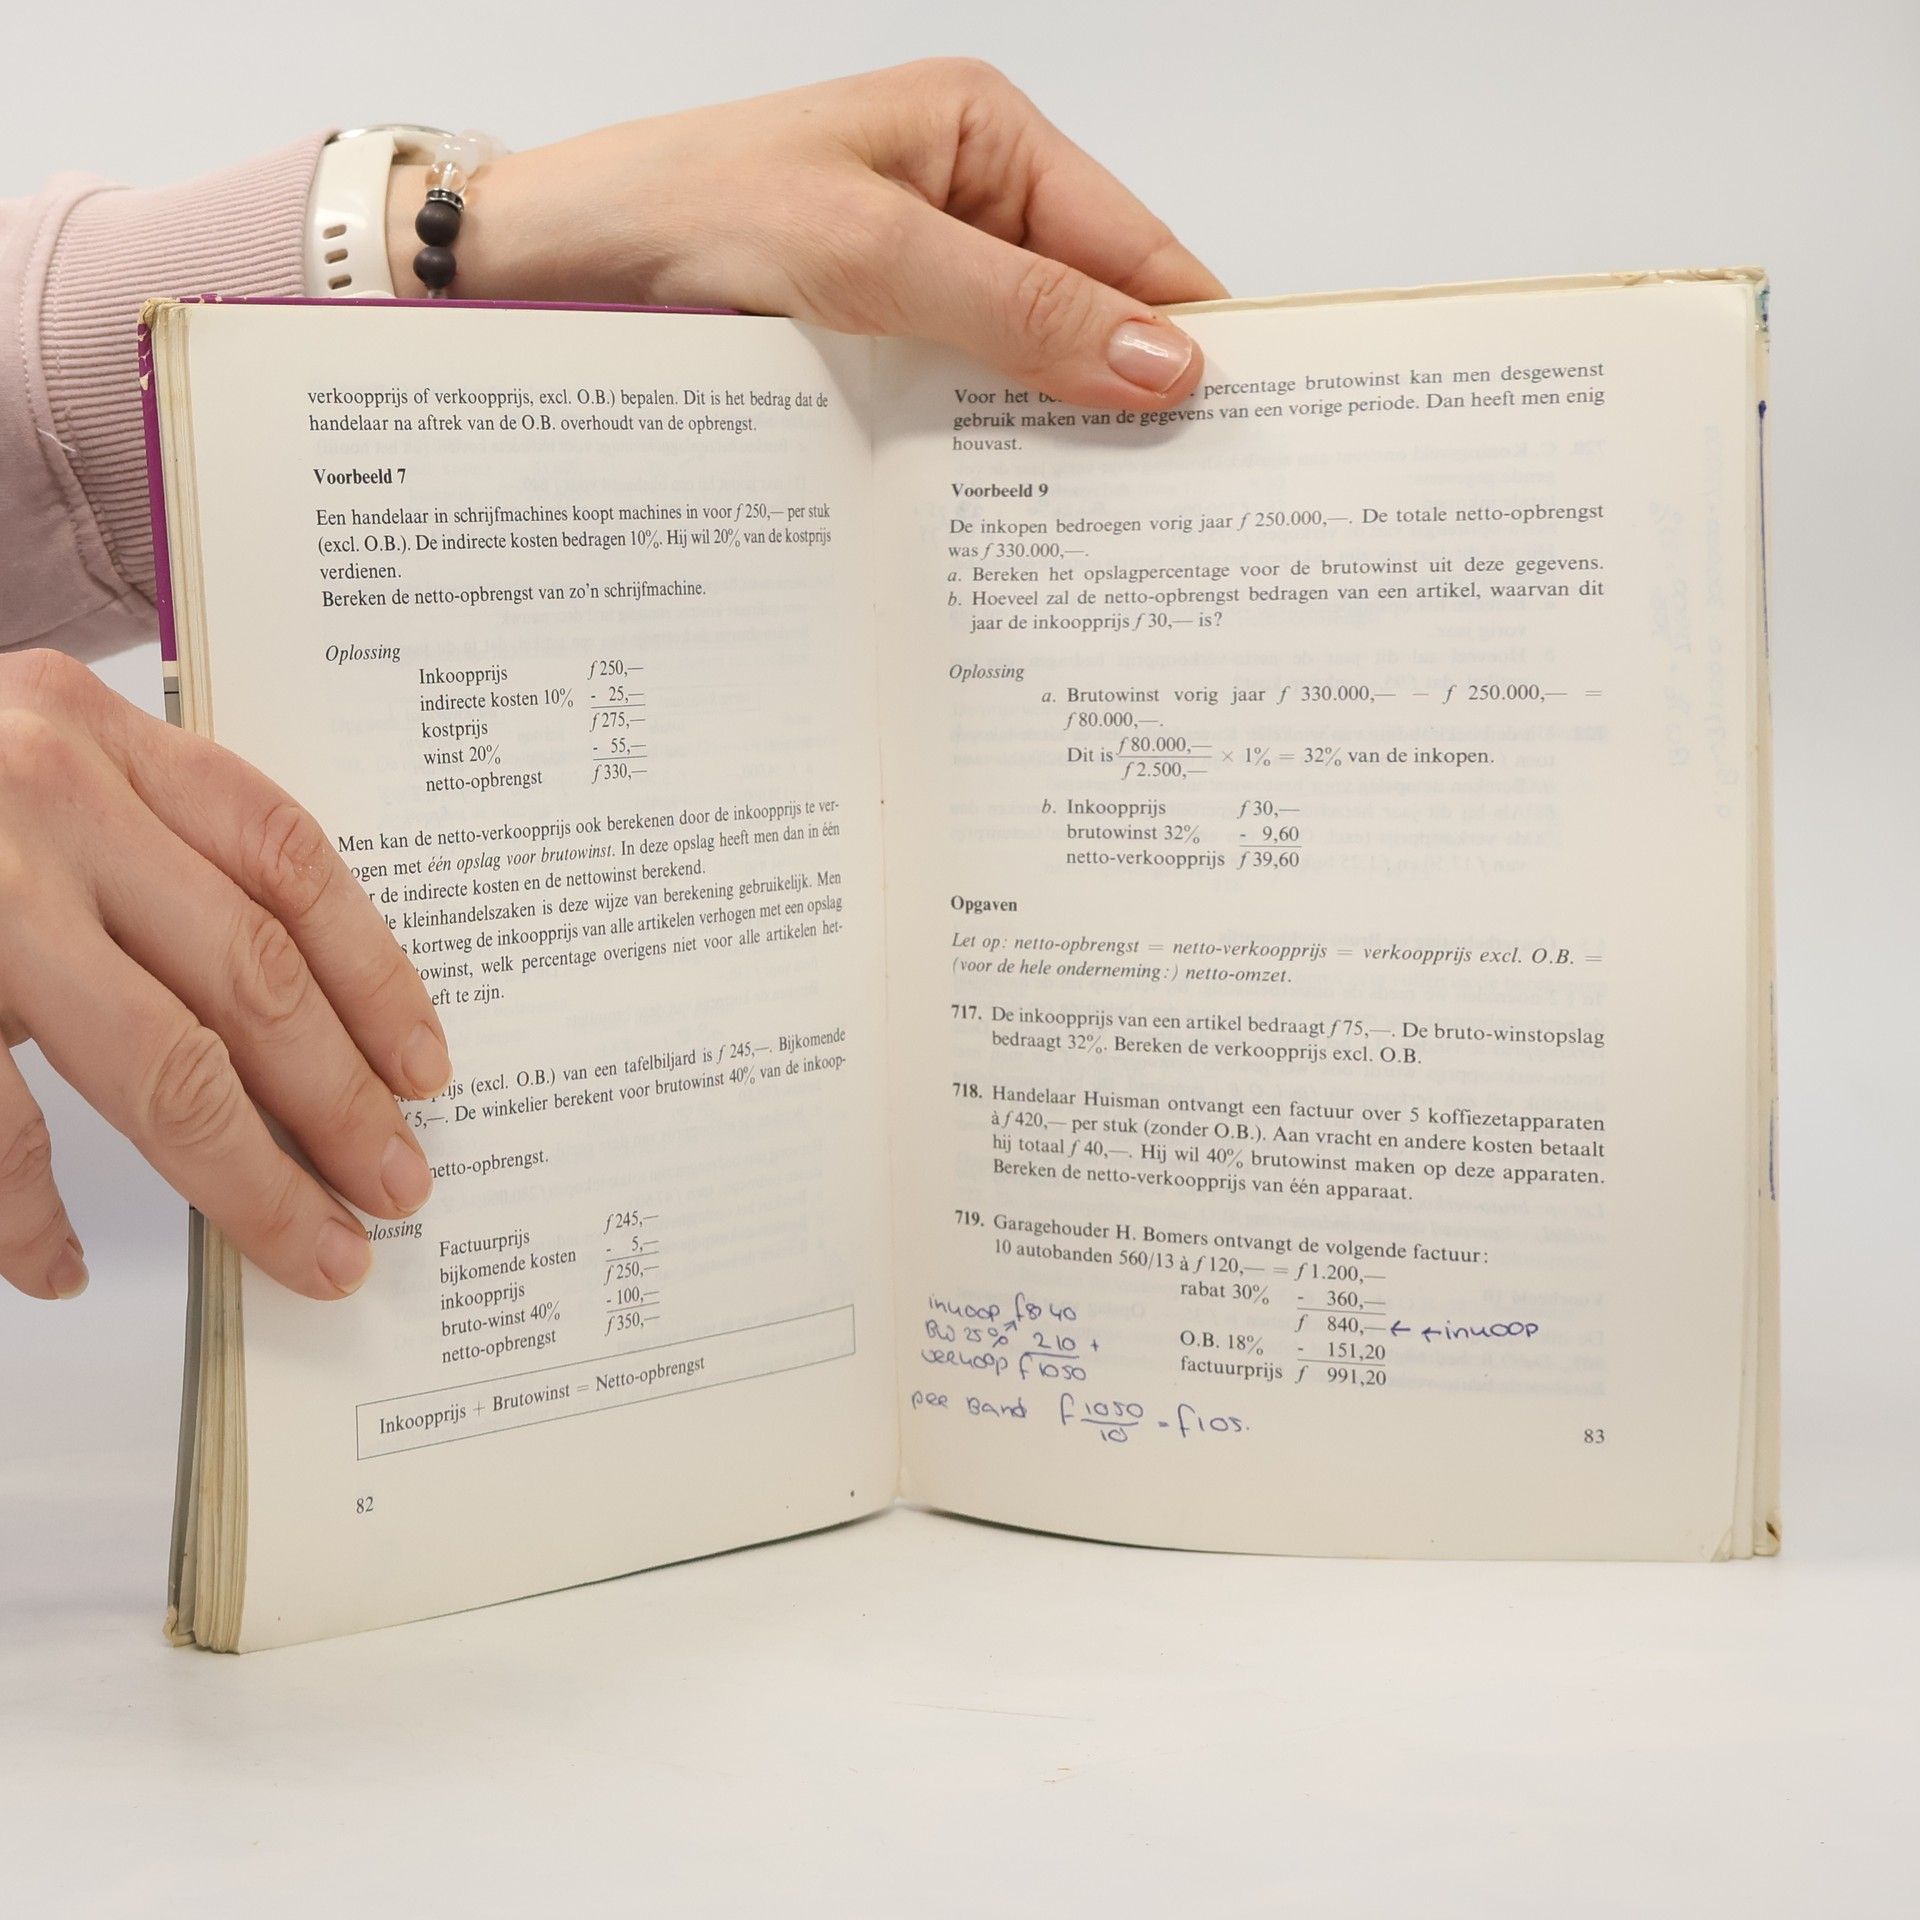 verkoopprijs of verkoopprijs, excl. O.B.) bepalen. Dit is het bedrag dat de
handelaar na aftrek van de O.B. overhoudt van de opbrengst.
Voorbeeld 7
Een handelaar in schrijfmachines koopt machines in voor f 250,— per stuk
(excl. O.B.). De indirecte kosten bedragen 10%. Hij wil 20% van de kostprijs
verdienen.
Bereken de netto-opbrengst van zo'n schrijfmachine.
Oplossing
Inkoopprijs f 250,—
indirecte kosten 10% - 25,—
kostprijs f 275,—
winst 20% - 55,—
netto-opbrengst f 330,—
Men kan de netto-verkoopprijs ook berekenen door de inkoopprijs te ver-
ogen met één opslag voor brutowinst. In deze opslag heeft men dan in één
r de indirecte kosten en de nettowinst berekend.
le kleinhandelszaken is deze wijze van berekening gebruikelijk. Men
s kortweg de inkoopprijs van alle artikelen verhogen met een opslag
towinst, welk percentage overigens niet voor alle artikelen het-
eft te zijn.
ijs (excl. O.B.) van een tafelbiljard is f 245,—. Bijkomende
f 5,—. De winkelier berekent voor brutowinst 40% van de inkoop-
netto-opbrengst.
plossing
Factuurprijs f 245,—
bijkomende kosten - 5,—
inkoopprijs f 250,—
bruto-winst 40% - 100,—
netto-opbrengst f 350,—
Inkoopprijs + Brutowinst = Netto-opbrengst
82
Voor het percentage brutowinst kan men desgewenst
gebruik maken van de gegevens van een vorige periode. Dan heeft men enig
houvast.
Voorbeeld 9
De inkopen bedroegen vorig jaar f 250.000,—. De totale netto-opbrengst
was f 330.000,—.
a. Bereken het opslagpercentage voor de brutowinst uit deze gegevens.
b. Hoeveel zal de netto-opbrengst bedragen van een artikel, waarvan dit
jaar de inkoopprijs f 30,— is?
Oplossing
a. Brutowinst vorig jaar f 330.000,— — f 250.000,— =
f 80.000,—.
Dit is f 80.000,— / f 2.500,— × 1% = 32% van de inkopen.
b. Inkoopprijs f 30,—
brutowinst 32% - 9,60
netto-verkoopprijs f 39,60
Opgaven
Let op: netto-opbrengst = netto-verkoopprijs = verkoopprijs excl. O.B. =
(voor de hele onderneming:) netto-omzet.
717. De inkoopprijs van een artikel bedraagt f 75,—. De bruto-winstopslag
bedraagt 32%. Bereken de verkoopprijs excl. O.B.
718. Handelaar Huisman ontvangt een factuur over 5 koffiezetapparaten
à f 420,— per stuk (zonder O.B.). Aan vracht en andere kosten betaalt
hij totaal f 40,—. Hij wil 40% brutowinst maken op deze apparaten.
Bereken de netto-verkoopprijs van één apparaat.
719. Garagehouder H. Bomers ontvangt de volgende factuur:
10 autobanden 560/13 à f 120,— = f 1.200,—
rabat 30% - 360,—
f 840,— ← ← inkoop
O.B. 18% - 151,20
factuurprijs f 991,20
inkoop f 840
BW 25% ↗ 210 +
verkoop f 1050
per Band f 1050 / 10 = f 105.
83